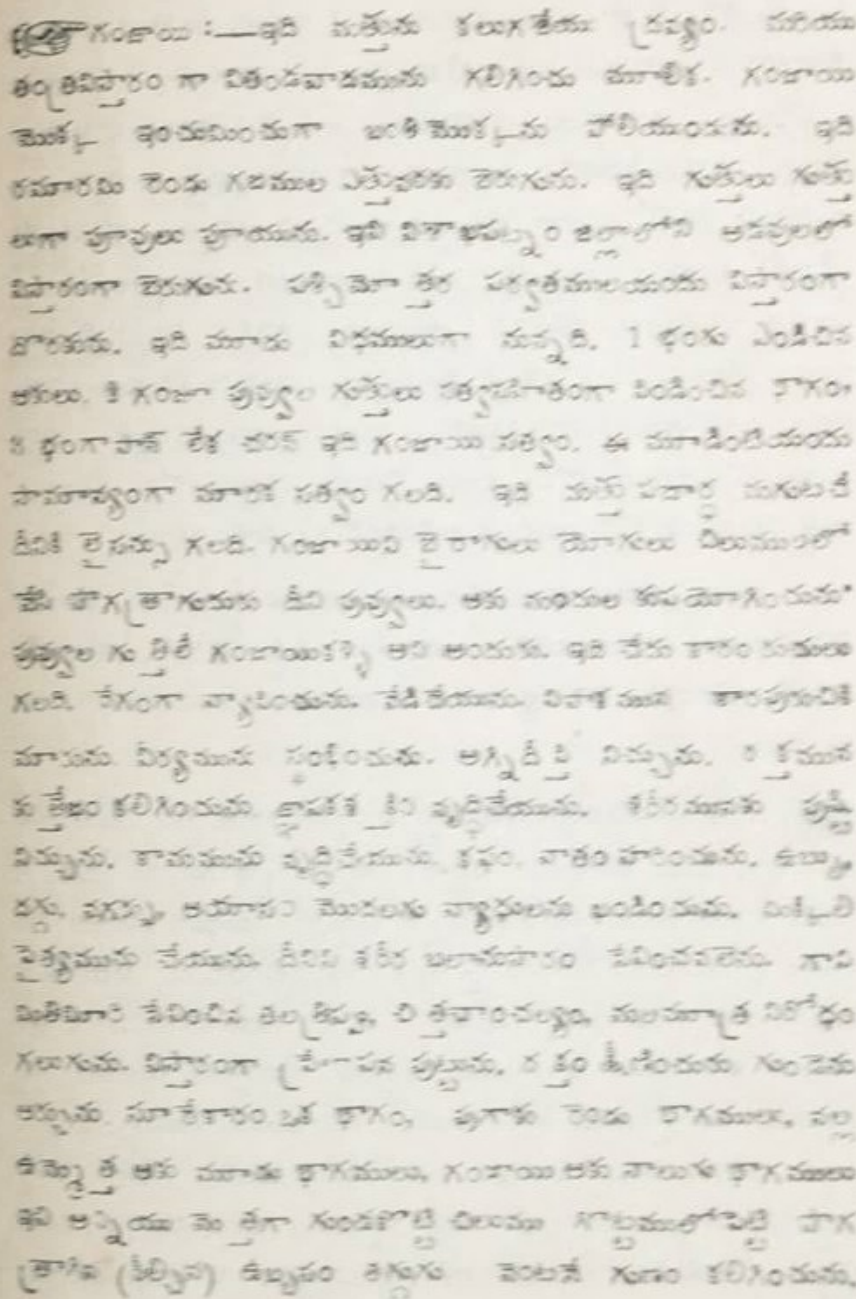 గంజాయి :—ఇది మత్తును కలుగచేయు ద్రవ్యం. మరియు
తంత్రవిస్తారం గా వితండవాదమును గలిగించు మూలిక. గంజాయి
మొక్క ఇంచుమించుగా బంతి మొక్కను పోలియుండును. ఇది
రమారమి రెండు గజముల ఎత్తువరకు పెరుగును. ఇది గుత్తులు గుత్తు
లుగా పూవులు పూయును. ఇవి విశాఖపట్నం జిల్లాలోని అడవులలో
విస్తారంగా పెరుగును. పశ్చిమోత్తర పర్వతములయందు విస్తారంగా
దొరకును. ఇది మూడు విధములుగా నున్నది. 1 భంగు ఎండిచిన
ఆకులు. గంజా పువ్వుల గుత్తులు సత్వసహితంగా పిండించిన భాగం,
భంగాపాన్ లేక చరస్ ఇది గంజాయి సత్వం. ఈ మూడింటియందు
సామాన్యంగా మాదక సత్వం గలది. ఇది మత్తు పదార్ధ మగుటచే
దీనికి లైసన్సు గలదు. గంజాయిని బైరాగులు యోగులు చిలుములో
వేసి పొగ త్రాగుదురు దీని పువ్వులు. ఆకు మందుల కుపయోగించును
పువ్వుల గుత్తినే గంజాయికళ్ళి అని అందురు. ఇది చేదు కారం రుచులు
గలది. వేగంగా వ్యాపించును. వేడిచేయును. విపాకమున కారపురుచికి
మారును. వీర్యమును స్తంభించును. అగ్నిదీప్తి నిచ్చును. రక్తమున
కుత్తేజం కలిగించును జ్ఞాపకశక్తిని వృద్ధిచేయును. శరీరమునకు పుష్టి
నిచ్చును. కామమును వృద్ధిచేయును. కఫం, వాతం హరించును. ఉబ్బు,
దగ్గు, పగర్పు, ఆయాసం మొదలగు వ్యాధులను ఖండించును.
పైత్యమును చేయును. దీనిని శరీర బలానుసారం సేవించవలెను. గాని
మితిమీరి సేవించిన తల త్రిప్పు, చిత్తచాంచల్యం, మలమూత్ర నిరోధం
గలుగును. విస్తారంగా పుట్టును. రక్తం క్షీణించును గుండెను
ఆర్పును సూరేకారం ఒక భాగం, పుగాకు రెండు భాగములు, నల్ల
ఉమ్మెత్త ఆకు మూడు భాగములు, గంజాయి ఆకు నాలుగు భాగములు
ఇవి అన్నియు మెత్తగా గుండకొట్టి చిలుము గొట్టములోపెట్టి పొగ
త్రాగిన (పీల్చిన) ఉబ్బసం తగ్గును వెంటనే గుణం కలిగించును.